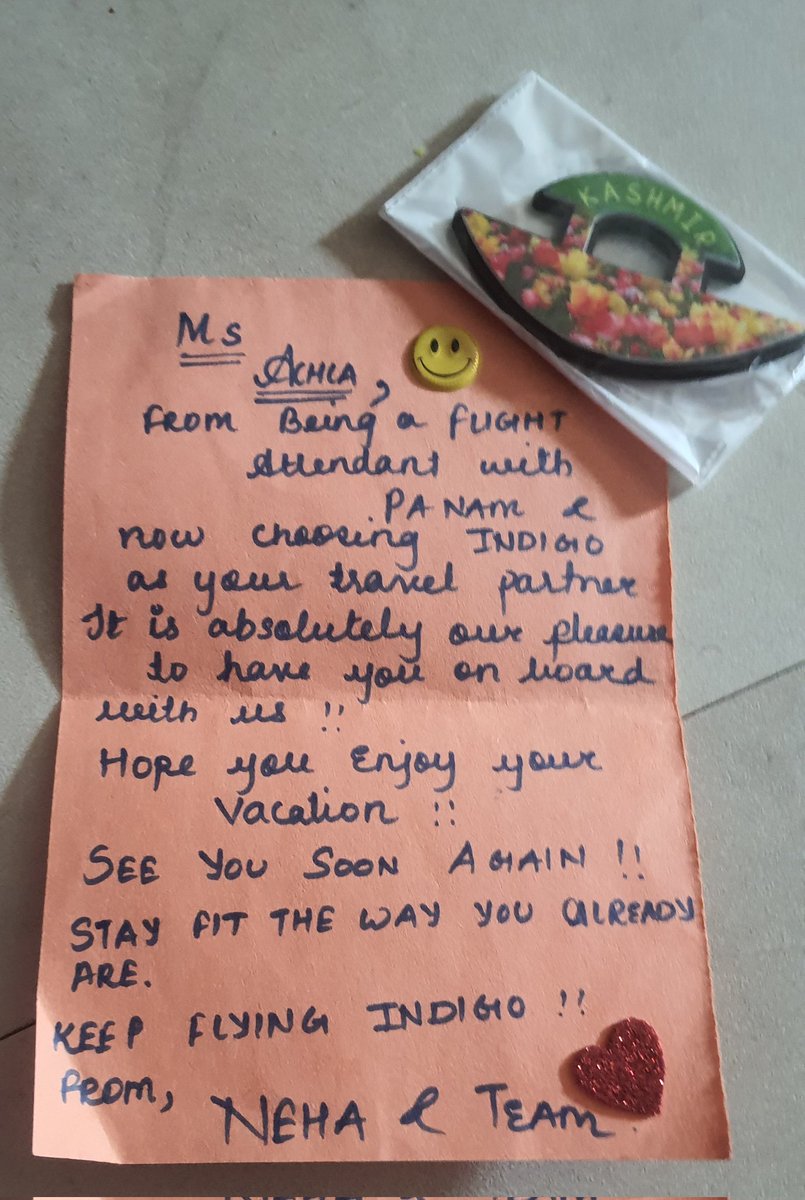 KASHMIR
Ms
ACHLA,
FROM Being a FLIGHT
Attendant with
PANAM &
now choosing INDIGO
as your travel partner
It is absolutely our pleasure
to have you on board
with us !!
Hope you Enjoy your
Vacation !!
SEE YOU SOON AGAIN !!
STAY FIT THE WAY YOU ALREADY
ARE.
KEEP FLYING INDIGO !!
FROM,
NEHA & TEAM